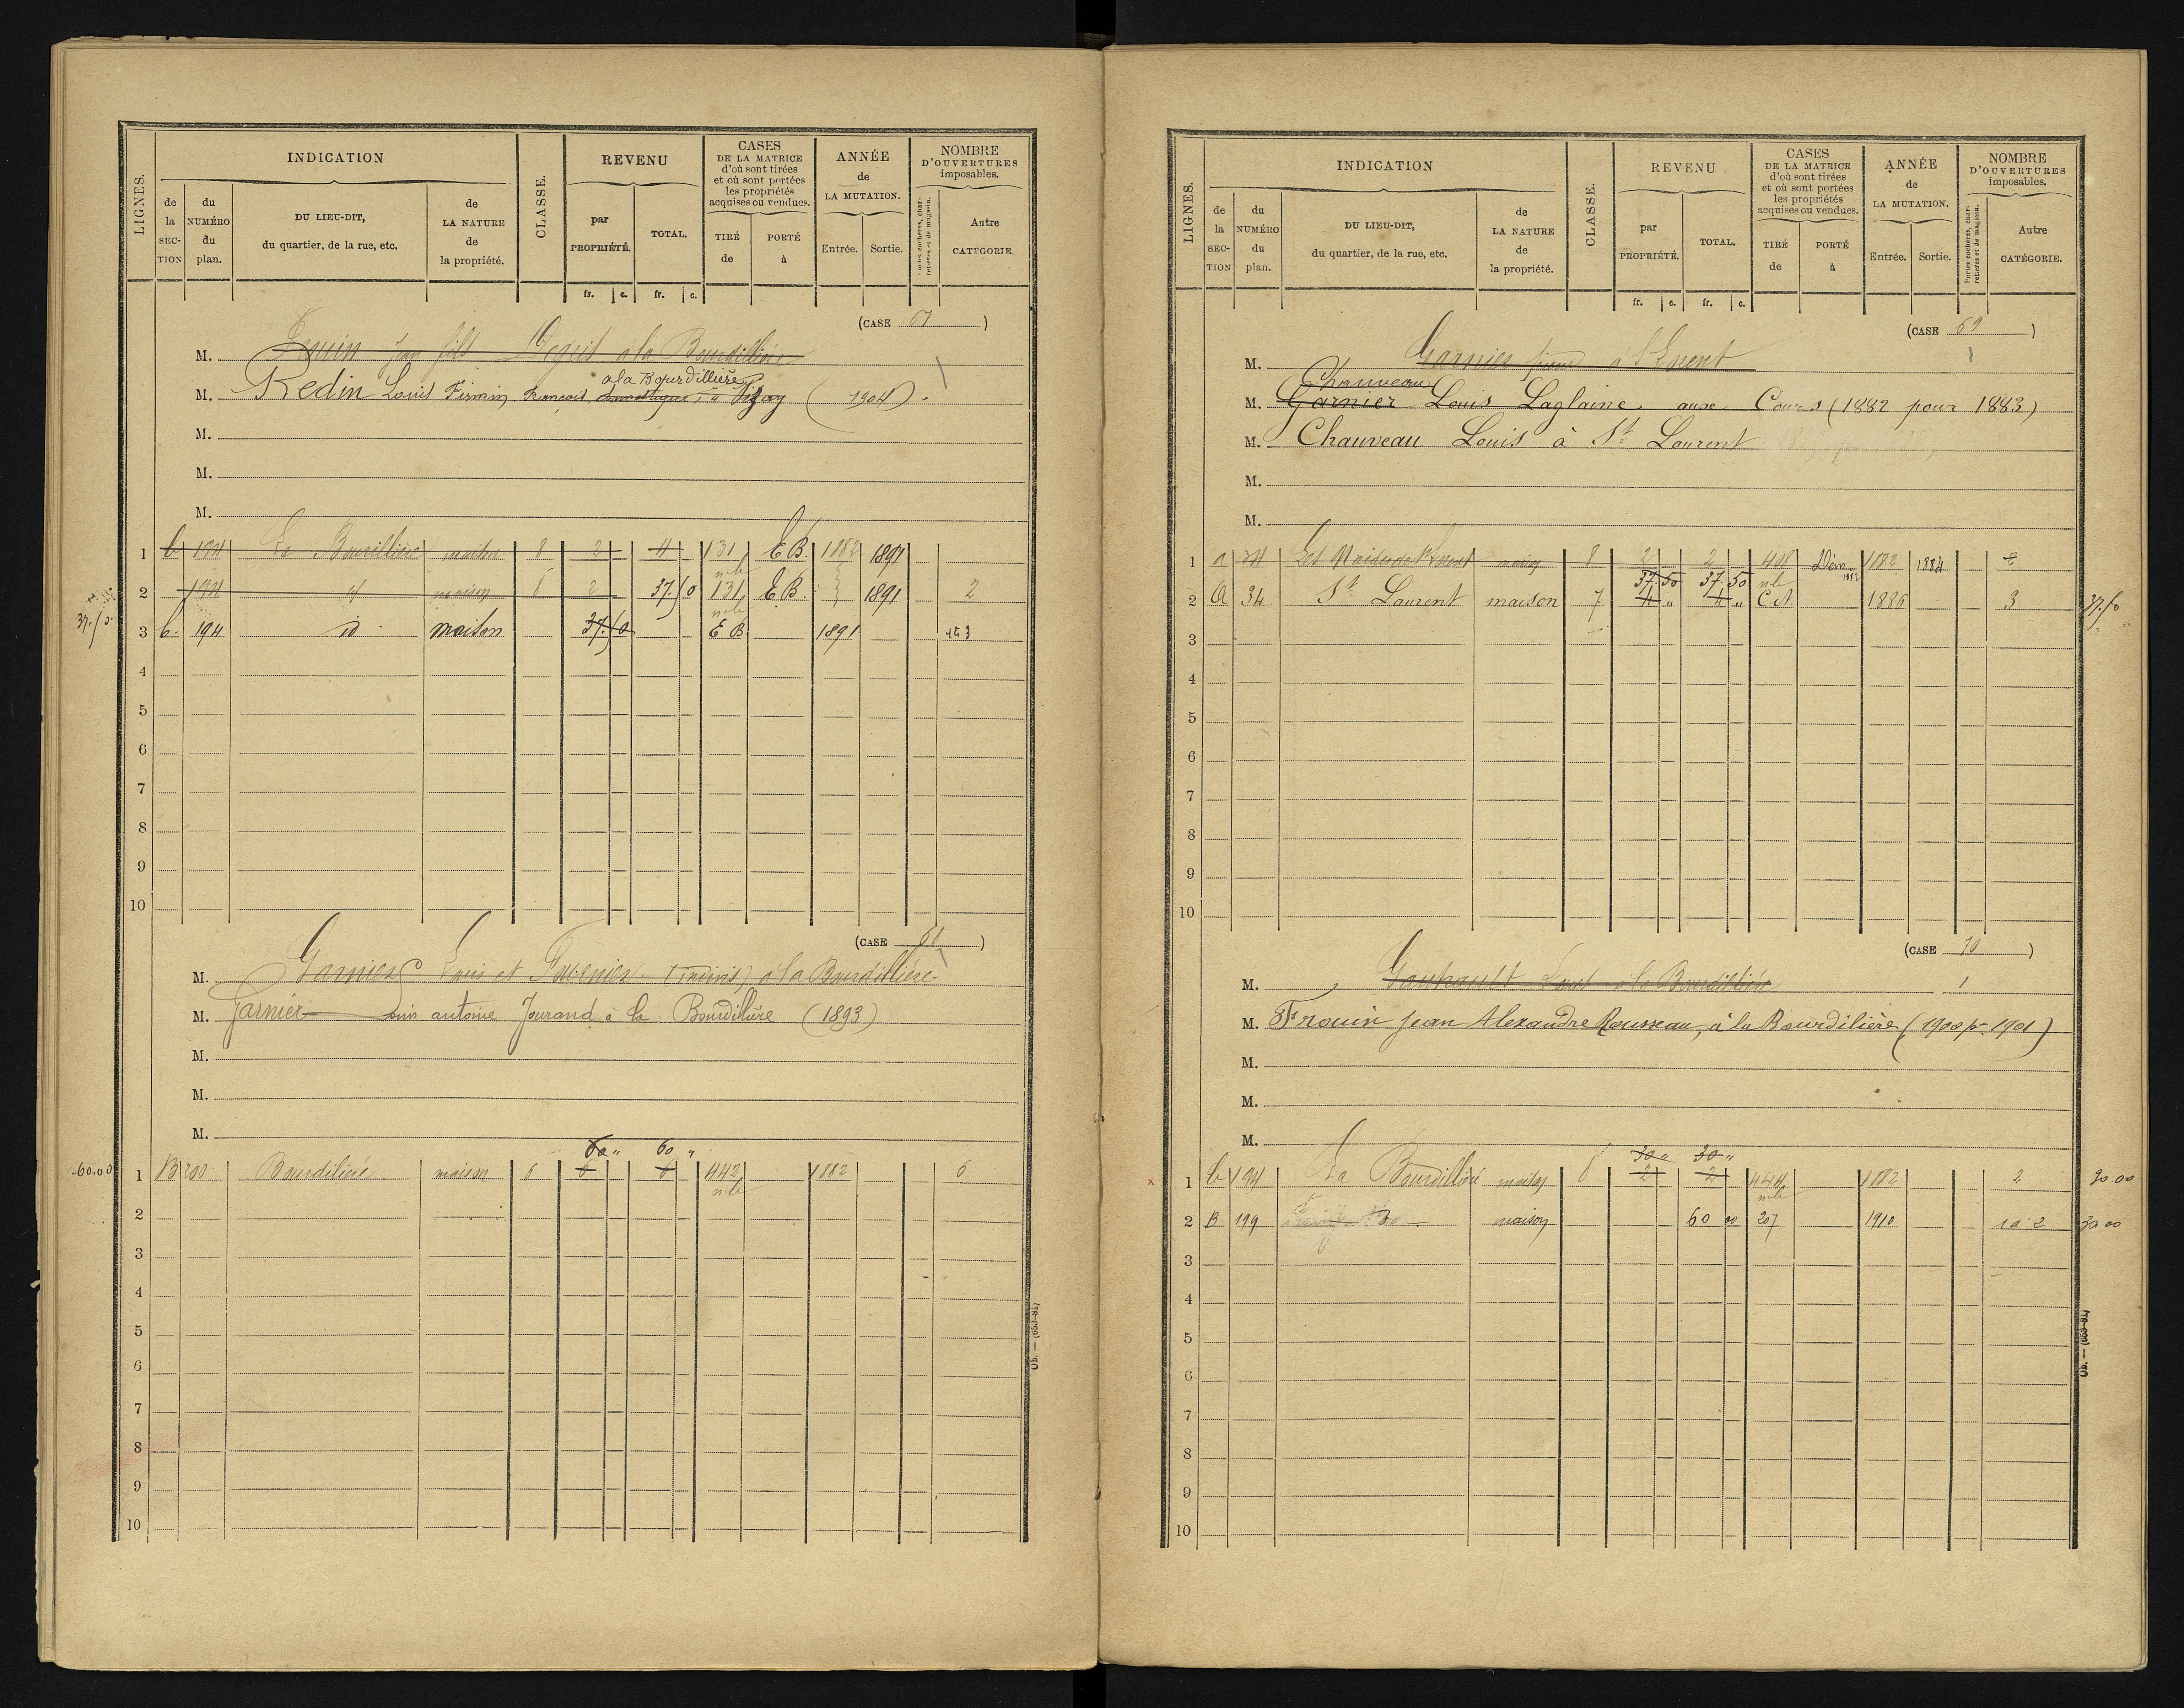 LIGNES.
INDICATION
de la SECTION
du NUMÉRO du plan.
DU LIEU-DIT, du quartier, de la rue, etc.
de LA NATURE de la propriété.
CLASSE.
REVENU
par PROPRIÉTÉ.
TOTAL.
CASES DE LA MATRICE d'où sont tirées et où sont portées les propriétés acquises ou vendues.
TIRÉ de
PORTÉ à
ANNÉE de LA MUTATION.
Entrée.
Sortie.
NOMBRE D'OUVERTURES imposables.
Portes cochères, charretières et de magasin.
Autre CATÉGORIE.
fr. c. fr. c.
(CASE 67)
M. Jean fils à la Bourdillière
à la Bourdillière
M. Redin Louis Firmin François à (1904).
M.
M.
M.
1 b 194 La maison 8 2 4 131 E B. 1882 1891
nle
2 194 d maison 8 2 37.50 131 E B. 1891 2
nle
37.50 3 b. 194 d maison 37.50 E B 1891 3
4
5
6
7
8
9
10
(CASE 68)
M. Garnier Louis et (indivis) à la Bourdillière
M. Garnier Louis antoine Jourand à la Bourdillière (1893)
M.
M.
M.
60 " 60 "
60.00 1 B 200 Bourdilière maison 6 6 6 442 1882 6
nle
2
3
4
5
6
7
8
9
10
Ob. — (653-81)
LIGNES.
INDICATION
de la SECTION
du NUMÉRO du plan.
DU LIEU-DIT, du quartier, de la rue, etc.
de LA NATURE de la propriété.
CLASSE.
REVENU
par PROPRIÉTÉ.
TOTAL.
CASES DE LA MATRICE d'où sont tirées et où sont portées les propriétés acquises ou vendues.
TIRÉ de
PORTÉ à
ANNÉE de LA MUTATION.
Entrée.
Sortie.
NOMBRE D'OUVERTURES imposables.
Portes cochères, charretières et de magasin.
Autre CATÉGORIE.
fr. c. fr. c.
(CASE 69)
M. Garnier à St Laurent
Chauveau
M. Garnier Louis Laglaine aux Cours (1882 pour 1883)
M. Chauveau Louis à St Laurent
M.
M.
1 a 34 maison 8 2 2 408 Dém 1882 1882 1884 2
37.50 37 50 nle
2 A 34 St Laurent maison 7 4 " 4 " C.N 1886 3 37.50
3
4
5
6
7
8
9
10
(CASE 70)
M. Louis à la Bourdillière
M. Frouin Jean Alexandre Rousseau, à la Bourdilière (1900 pr 1901)
M.
M.
M.
30 " 30 "
1 b 194 La Bourdillière maison 8 2 2 444 1882 2 30.00
nle
2 B 199 maison 60 00 207 1910 2 30 00
3
4
5
6
7
8
9
10
Ob. — (653-81)